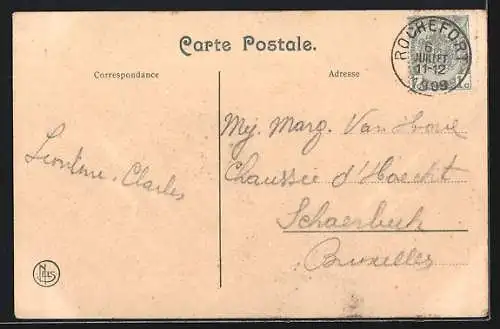 Carte Postale.
Correspondance
Adresse
ROCHEFORT
6
JUILLET
11-12
1909
Mej. Marg. Van
Chaussée d'Haecht
Schaerbeek
Bruxelles
Léontine, Charles
NELS